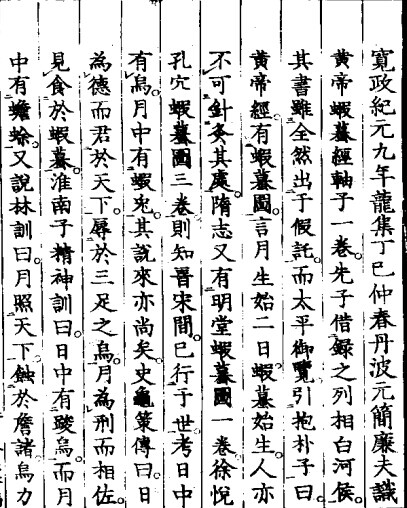 寬政紀元九年龍集丁巳仲春丹波元簡廉夫識
黄帝蝦蟇經軸子一卷先子借録之列相白河侯。
其書雖全然出于假託。而太平御覽引抱朴子曰。
黄帝經。有蝦蟇圖。言月生始二日。蝦蟇始生。人亦
不可針灸其處。隋志又有明堂蝦蟇圖一卷徐悅
孔穴蝦蟇圖三卷則知晋宋間。已行于世考日中
有烏。月中有蝦兎。其說來亦尚矣。史龜策傳曰。日
為德而君於天下。辱於三足之烏。月為刑而相佐。
見食於蝦蟇。淮南子精神訓曰。日中有踆烏。而月
中有蟾蜍。又說林訓曰。月照天下。蝕於詹諸烏力